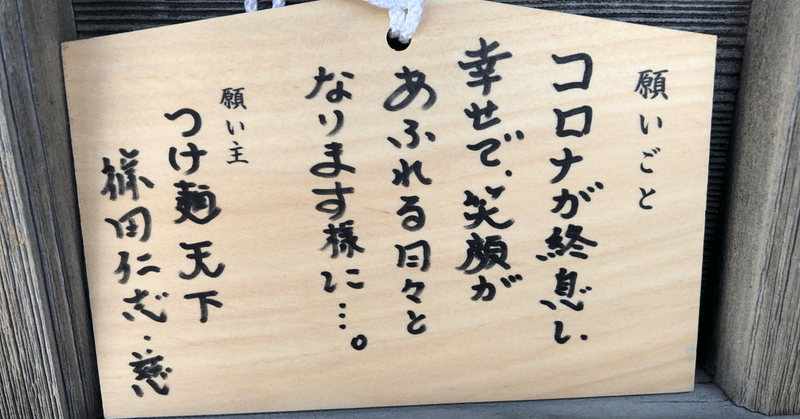 願いごと
コロナが終息し、
幸せで、笑顔が
あふれる日々と
なります様に…。
願い主
つけ麺 天下
篠田仁志・慈